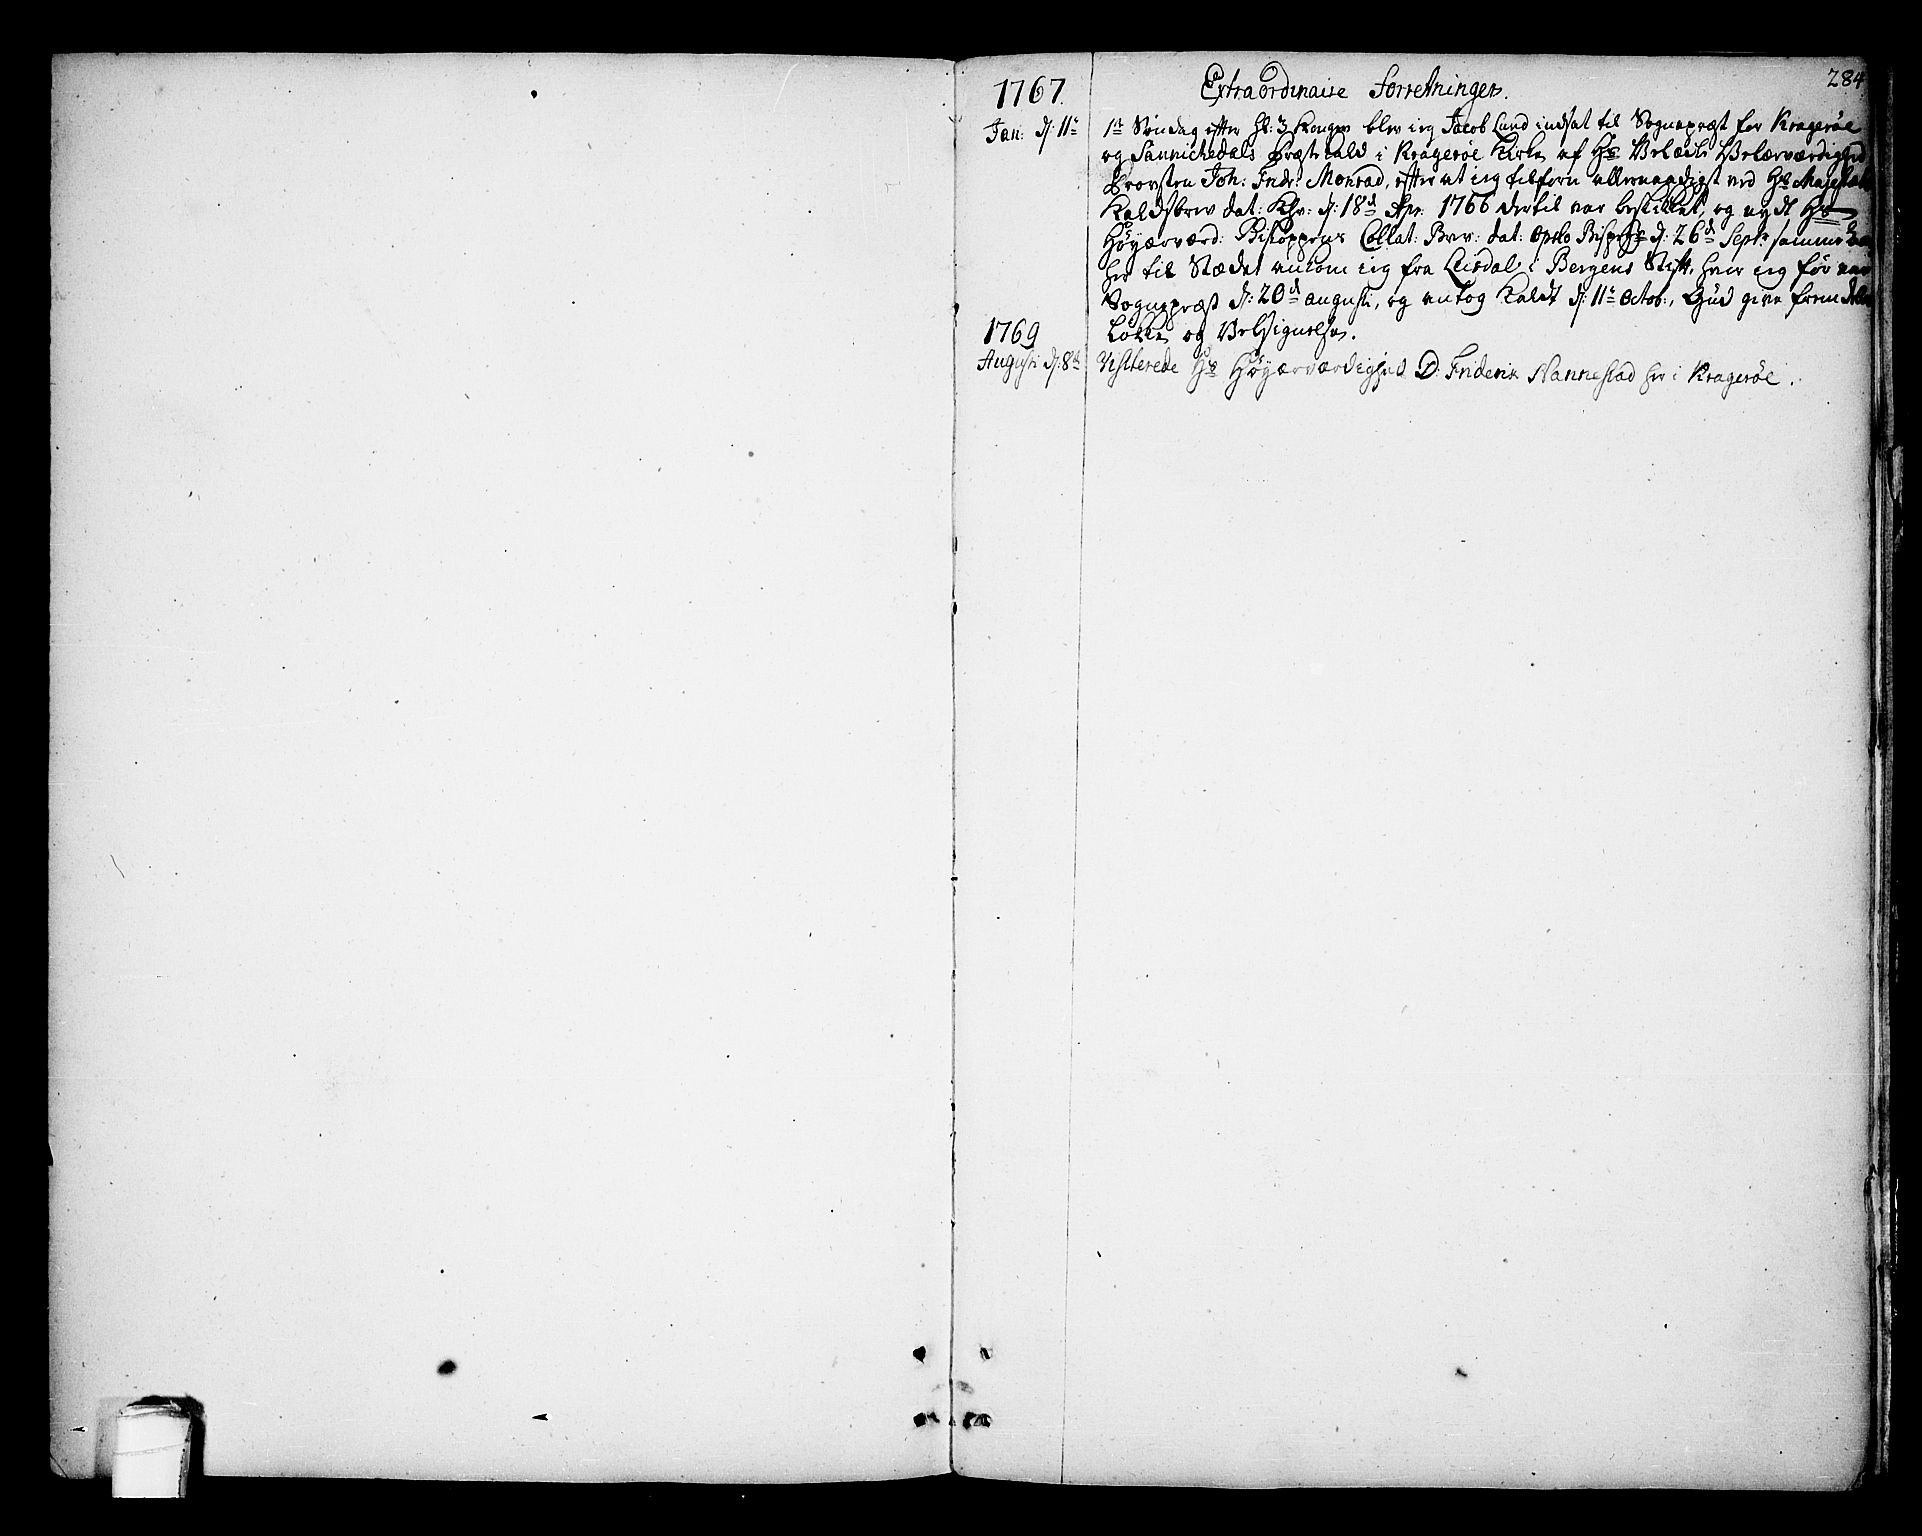 284
1767. Extraordinaire Forretninger.
Jan: d: 11te 1te Søndag efter Hl: 3 Konger blev ieg Jacob Lund indsat til Sognepræst for Kragerøe
og Sannichedals Præstekald i Kragerøe Kirke af Hs Velædle Velærværdighed
Provsten Joh: Fridr: Monrad, efter at ieg tilforn allernaadigst ved Hs Majestæts
Kaldsbrev dat: Khv: d: 18d Apr: 1766 dertil var beskikket, og nydt Hs
Høyærværd: Biskoppens Collat: Brev: dat: Opslo Bispeg: d: 26d Septr samme
her til Stædet ankom ieg fra Leirdal i Bergens Stift, hvor ieg før var
Sognepræst d: 20d augusti, og antog Kaldt d: 11te Octob:, Gud give fremdeles
1769 Lökke og Velsignelse.
Augusti d: 8de Visiterede Hs Høyærværdighed D: Friderik Nannestad her i Kragerøe.